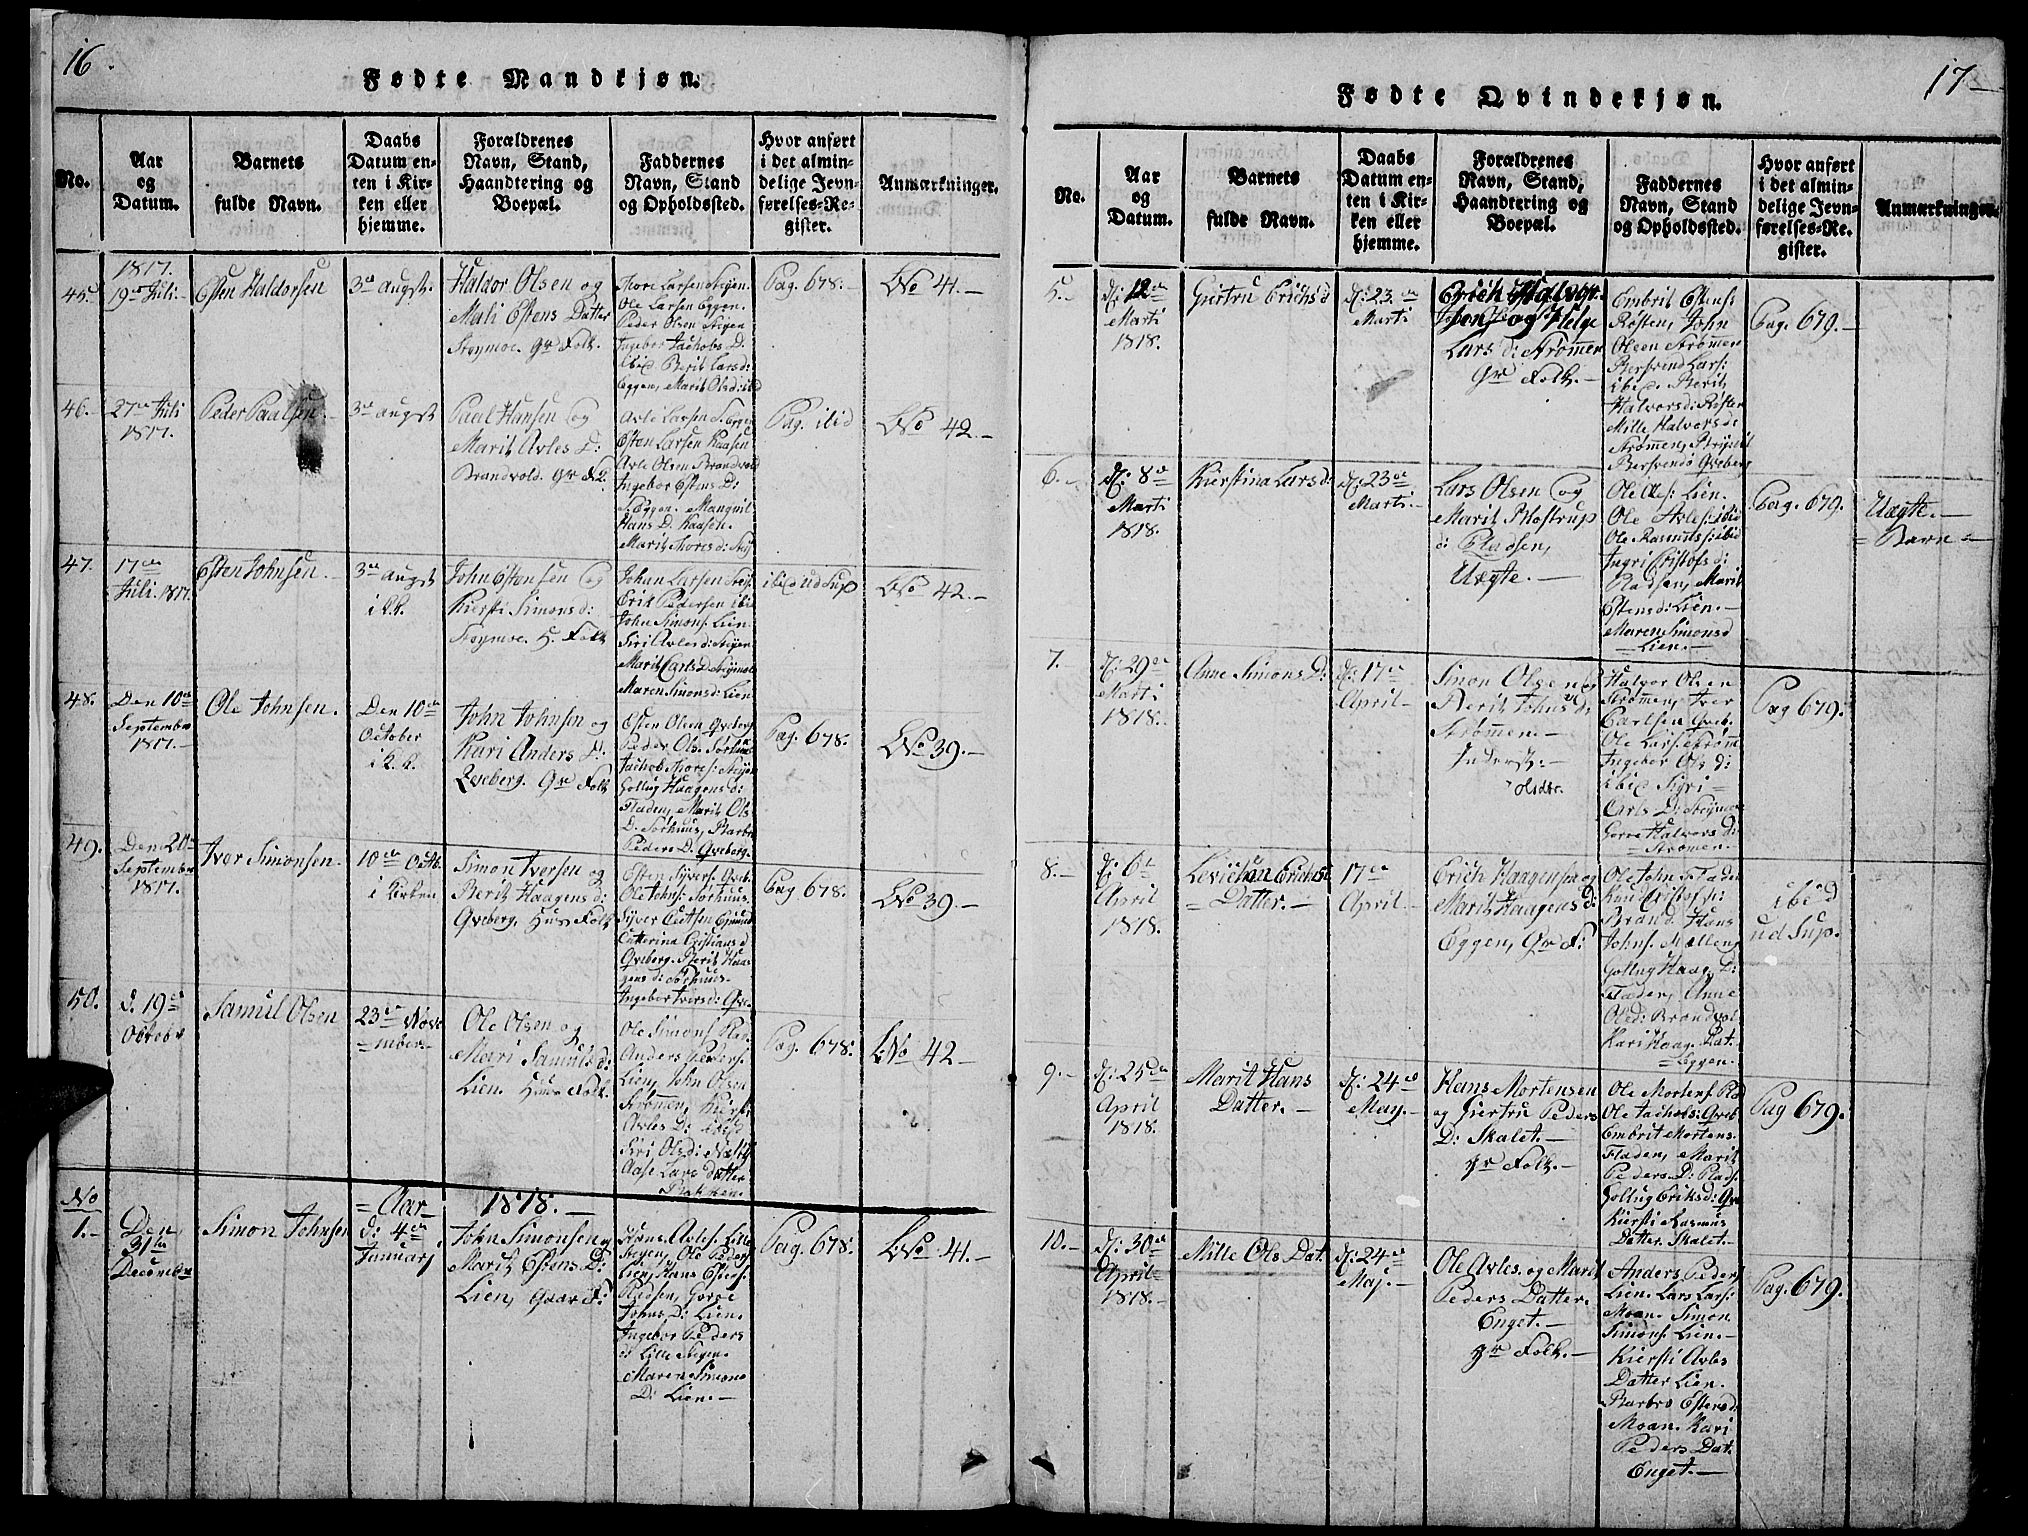 16.
Fødte Mandkjøn.
No.
Aar
og
Datum.
Barnets
fulde Navn.
Daabs
Datum en-
ten i Kir-
ken eller
hjemme.
Forældrenes
Navn, Stand,
Haandtering og
Boepæl.
Faddernes
Navn, Stand
og Opholdssted.
Hvor anført
i det almin-
delige Jevn-
førelses-Re-
gister.
Anmærkninger.
45.
1817.
19de Juli
Esten Haldorsen
3de augst.
Haldor Olsen og
Mali Estens Datter
Støymoe. Gr Folk.
Tore Larsen Støjen
Ole Larsen Eggen.
Peder Olsen Støjen
Ingebor Jachobs D.
ibid Berit Lars d:
Eggen, Marit Ols d: ibid
Pag. 678.
No 41.
46.
27de Juli
1817.
Peder Paalsen.
3de augst
Paal Hansen og
Marit Arles D:
Brandvold. Gr F.
Arle Larsen S. Eggen
Esten Larsen Kaasen
Arle Olsen Brandvold
Ingebor Estens D:
S. Eggen. Mangnil
Hans D. Kaasen.
Marit Tores d: Støj
Pag. ibid
No 42.
47.
17de
Juli. 1817.
Esten Johnsen.
3de augst
i k.k.
John Estensen og
Kiersti Simons d:
Støymoe. H. Folk
Johan Larsen Støj.
Erik Pedersen ibid
John Simons. Lien
Siri Arles d: Støjen
Marit Carls D. Støjmoe
Maren Simons d: Lien
ibid ud Sup
No 42.
48.
Den 10de
September
1817.
Ole Johnsen.
Den 10de
October
i k. k.
John Johnsen og
Kari Anders D.
Qveberg. Gr Folk
Esten Olsen Qveberg
Peder Ols. Sørhuus
Jachob Tores: Støjen
Gollug Haagens d:
Fladen, Marit Ols
D. Sørhuus, Barbro
Peders D. Qveberg.
Pag. 678.
No 39.
49.
Den 20de
September
1817.
Iver Simonsen.
10de Octb.
i Kirken
Simon Iversen og
Berit Haagens d:
Qveberg. Huus Folk
Esten Syvers. Qveb.
Ole Johns: Sørhuus.
Syver
Catterina Cristians d
Qveberg. Berit Haa-
gens d: Sørhuus.
Ingebor Ivers d: Qve.
Pag 678.
No 39.
50.
d. 19de
Octobr
Samul Olsen
23de Nove
=mber.
Ole Olsen og
Mari Samuls d:
Lien. Huus Folk.
Ole Simons Pla.
Anders Peders:
Lien, John Olsen
Strømen, Kiersti
Arles D: ibid
Siri Ols d:
Aase Lars datter
Pag. 678.
No 42
No
= Aar 1818.
1.
Den
31te
Decembr
Simon Johnsen
d: 4de
Januarj
John Simonsen og
Marit Estens D:
Lien, Gaard F:
Hans Arles: Lille
Støjen, Ole Peders
Lien, Hans Esters.
Pladsen, Gorve
Johns D: Lien.
Ingebor Peders
d: Lille Støjen.
Maren Simons
D: Lien.
Pag. 678.
No 41.
17
Fødte Qvindekjøn.
No.
Aar
og
Datum.
Barnets
fulde Navn.
Daabs
Datum en-
ten i Kir-
ken eller
hjemme.
Forældrenes
Navn, Stand,
Haandtering og
Boepæl.
Faddernes
Navn, Stand
og Opholdssted.
Hvor anført
i det almin-
delige Jevn-
førelses-Re-
gister.
Anmærkninger.
5.
d: 12te
Marti
1818.
Giertru Erichs d
d: 23de
Marti
Erich Halvor-
sen og Helge
Lars d: Strømmen
Gr Folk.
Embrit Estens:
Røsten, John
Olsen Strømen
Bersvend Lars:
ibid. Berit
Halvors d: Røsten
Mille Halvors d:
Strømen, Brynhil
Bersvends Qveberg
Pag. 679.
6.
d: 8de
Marti
1818.
Kierstina Lars d:
d: 23de
Marti
Lars Olsen og
Marit Rostrup
d: Pladsen,
Uægte.
Ole Oles: Lien.
Ole Arles: ibid
Ole Rasmuss: ibid
Ingri Cristofs d:
Pladsen, Marit
Estens d: Lien.
Maren Simons d
= Lien.
Pag. 679.
Uægte.
= Barn =
7.
d: 29de
Marti
1818.
Anne Simons D:
d: 17de
April
Simon Olsen og
Berit Johns d:
Strømen.
Inderst:
Olsdtr.
Halvor Olsen
Strømen, Iver
Carlsen Qveb.
Ole Lars: Strøm
Ingebor Ols d:
ibid Sigri
Carls D: Støjmoe
Gorve Halvors d:
= Strømen.
Pag 679.
8.
d: 6te
April
1818.
Lovise Erichs
= Datter.
17de
April
Erich Haagensen og
Marit Haagens d:
Eggen, Gr F:
Ole John: Fladen
Knud Cristofs:
Brand. Hans
Johns. Mølleng
Gollug Haag. D:
Fladen, Anne
Ols d: Brandvol
Kari Haag. Dat.
= Eggen.
ibid
ud Sup.
9.
d: 25de
April
1818.
Marit Hans
Datter.
d: 24de
May.
Hans Mortensen
og Giertru Peders
D: Skalet.
gr Folk.
Ole Mortens. Pla
Ole Jachobs: Qveb
Embrit Mortens.
Fladen, Marit
Peders D: Plads.
Gollug Eriks d: Qve
Kiersti Rasmus
Datter Skalet.
Pag 679.
10.
d: 30de
April
1818.
Mille Ols Dat.
d: 24de
Maj.
Ole Arles. og Marit
Peders Datter.
Enget.
gr Folk.
Anders Peders
Lien. Lars Lars:
Moan. Simon
Simons. Lien.
Kiersti Arles
Datter Lien.
Barbro Esters d:
Moan. Kari
Peders Dat.
Enget.
Pag. 679.